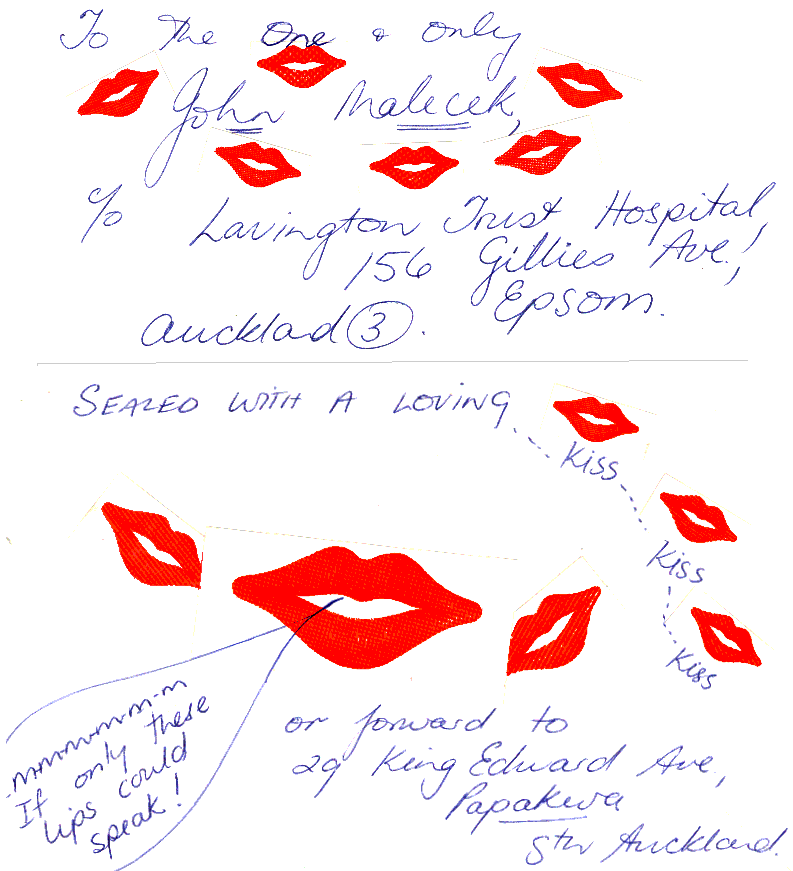 To the One & only
John Malecek,
c/o Lavington Trust Hospital,
156 Gillies Ave.,
Epsom.
Auckland 3.
SEALED WITH A LOVING
Kiss
Kiss
Kiss
m-m-m-m-m-m-m
If only these
lips could
speak!
or forward to
29 King Edward Ave.,
Papakura
Sth Auckland.